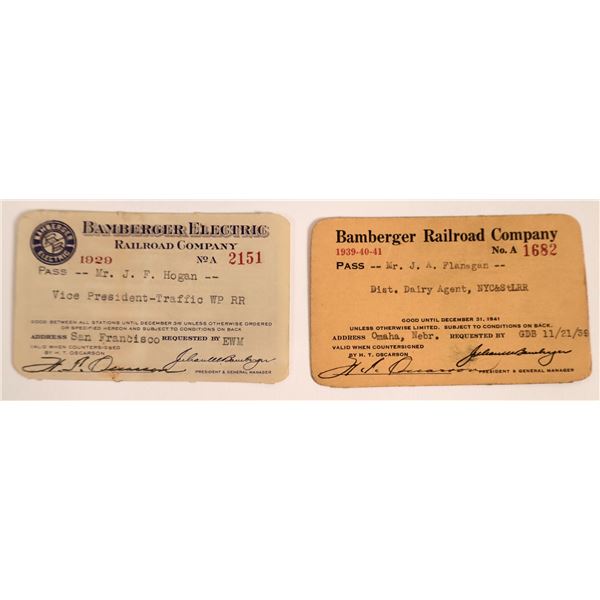 BAMBERGER ELECTRIC
BAMBERGER ELECTRIC
RAILROAD COMPANY
1929 No. A 2151
PASS -- Mr. J. F. Hogan --
Vice President-Traffic WP RR
GOOD BETWEEN ALL STATIONS UNTIL DECEMBER 31ST UNLESS OTHERWISE ORDERED
OR SPECIFIED HEREON AND SUBJECT TO CONDITIONS ON BACK
ADDRESS San Francisco REQUESTED BY EWM
VALID WHEN COUNTERSIGNED
BY H. T. OSCARSON
H. T. Oscarson Julian M Bamberger
PRESIDENT & GENERAL MANAGER
Bamberger Railroad Company
1939-40-41 No. A 1682
PASS -- Mr. J. A. Flanagan --
Dist. Dairy Agent, NYC&StLRR
GOOD UNTIL DECEMBER 31, 1941
UNLESS OTHERWISE LIMITED. SUBJECT TO CONDITIONS ON BACK.
ADDRESS Omaha, Nebr. REQUESTED BY GDB 11/21/39
VALID WHEN COUNTERSIGNED
BY H. T. OSCARSON
H. T. Oscarson Julian M Bamberger
PRESIDENT & GENERAL MANAGER